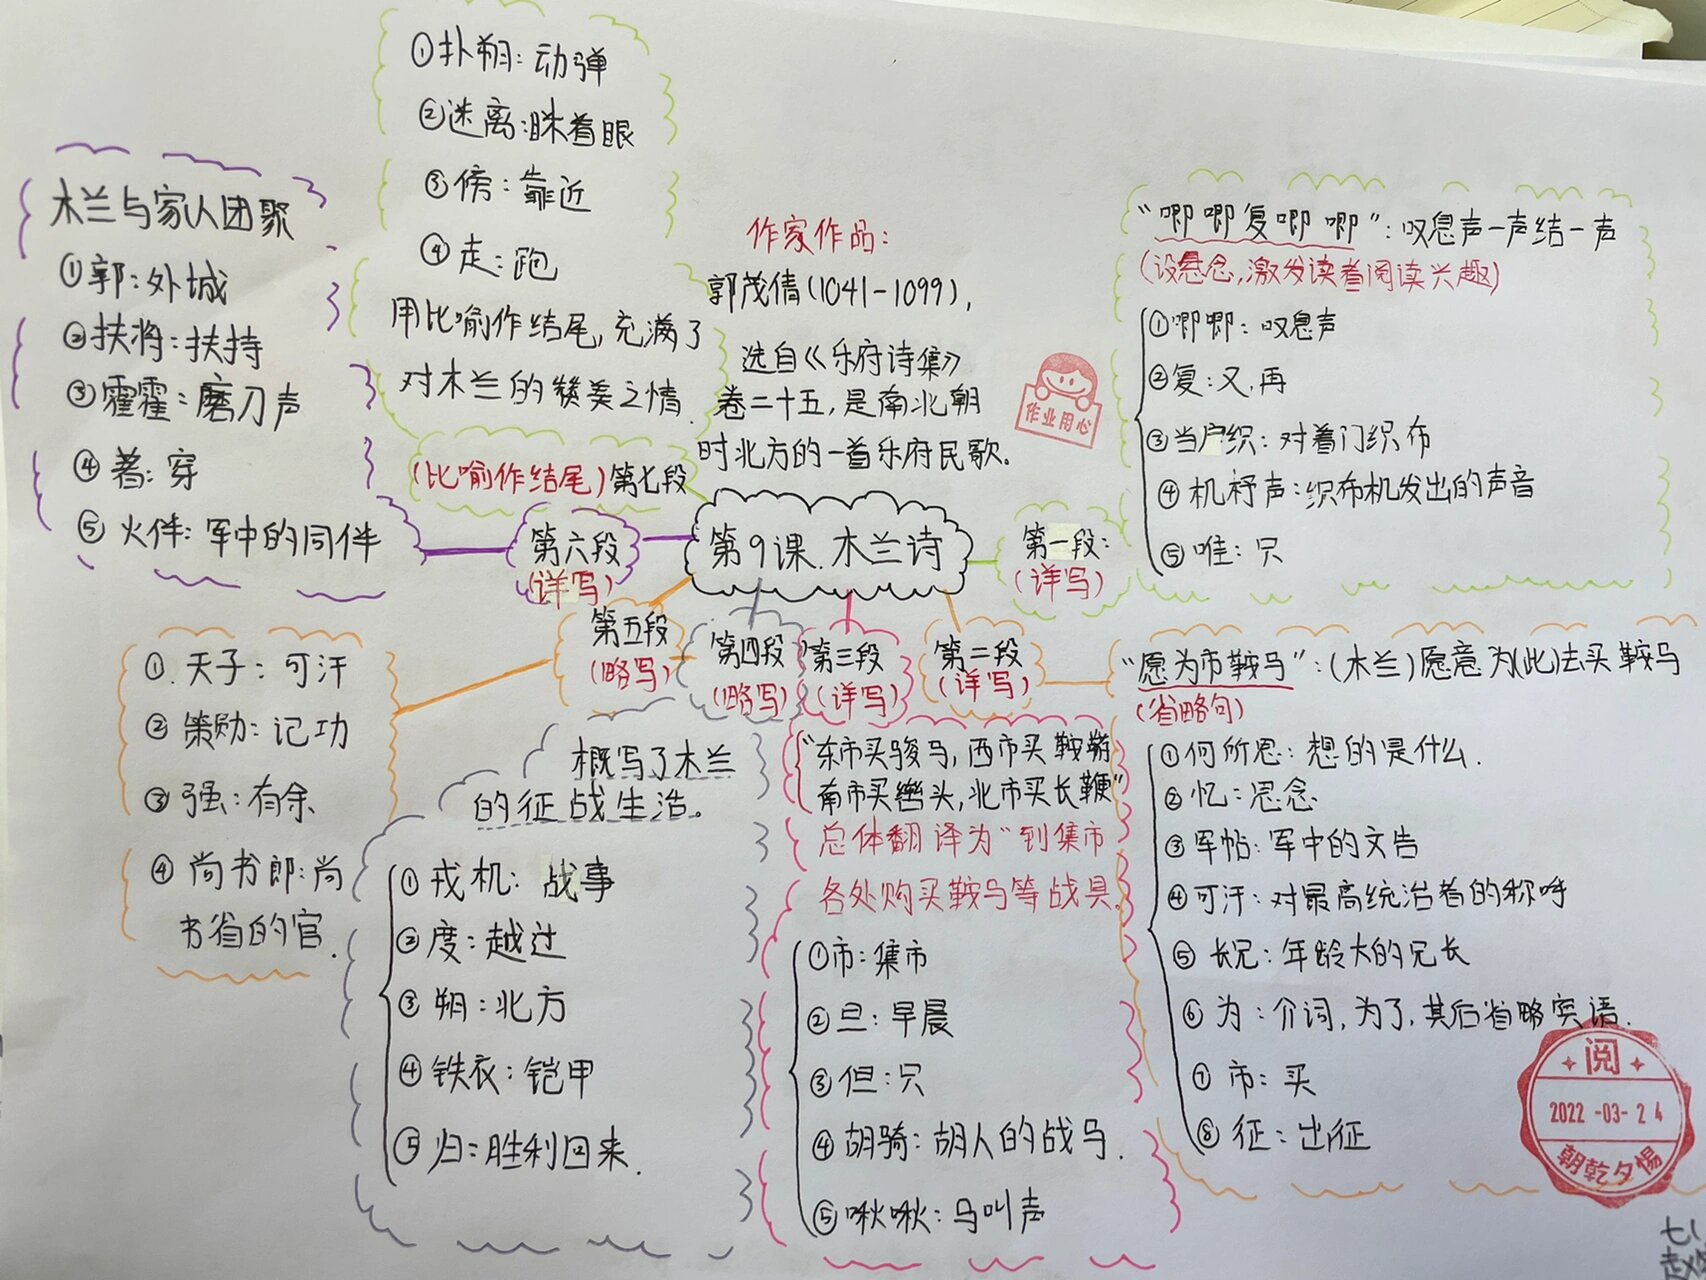 第9课.木兰诗
作家作品：
郭茂倩(1041-1099),
选自《乐府诗集》
卷二十五,是南北朝
时北方的一首乐府民歌.
作业用心
第一段：
(详写)
“唧唧复唧唧”：叹息声一声结一声
(设悬念,激发读者阅读兴趣)
①唧唧：叹息声
②复：又,再
③当户织：对着门织布
④机杼声：织布机发出的声音
⑤唯：只
第二段
(详写)
“愿为市鞍马”：(木兰)愿意为(此)去买鞍马
(省略句)
①何所思：想的是什么.
②忆：思念
③军帖：军中的文告
④可汗：对最高统治者的称呼
⑤长兄：年龄大的兄长
⑥为：介词,为了,其后省略宾语.
⑦市：买
⑧征：出征
第三段
(详写)
“东市买骏马,西市买鞍鞯
南市买辔头,北市买长鞭”
总体翻译为“到集市
各处购买鞍马等战具.
①市：集市
②旦：早晨
③但：只
④胡骑：胡人的战马.
⑤啾啾：马叫声
第四段
(略写)
概写了木兰
的征战生活。
①戎机：战事
②度：越过
③朔：北方
④铁衣：铠甲
⑤归：胜利回来.
第五段
(略写)
①.天子：可汗
②策勋：记功
③强：有余
④尚书郎：尚
书省的官.
第六段
(详写)
木兰与家人团聚
①郭：外城
②扶将：扶持
③霍霍：磨刀声
④著：穿
⑤火伴：军中的同伴
(比喻作结尾)第七段
①扑朔：动弹
②迷离：眯着眼
③傍：靠近
④走：跑
用比喻作结尾,充满了
对木兰的赞美之情.
阅
2022-03-24
朝乾夕惕